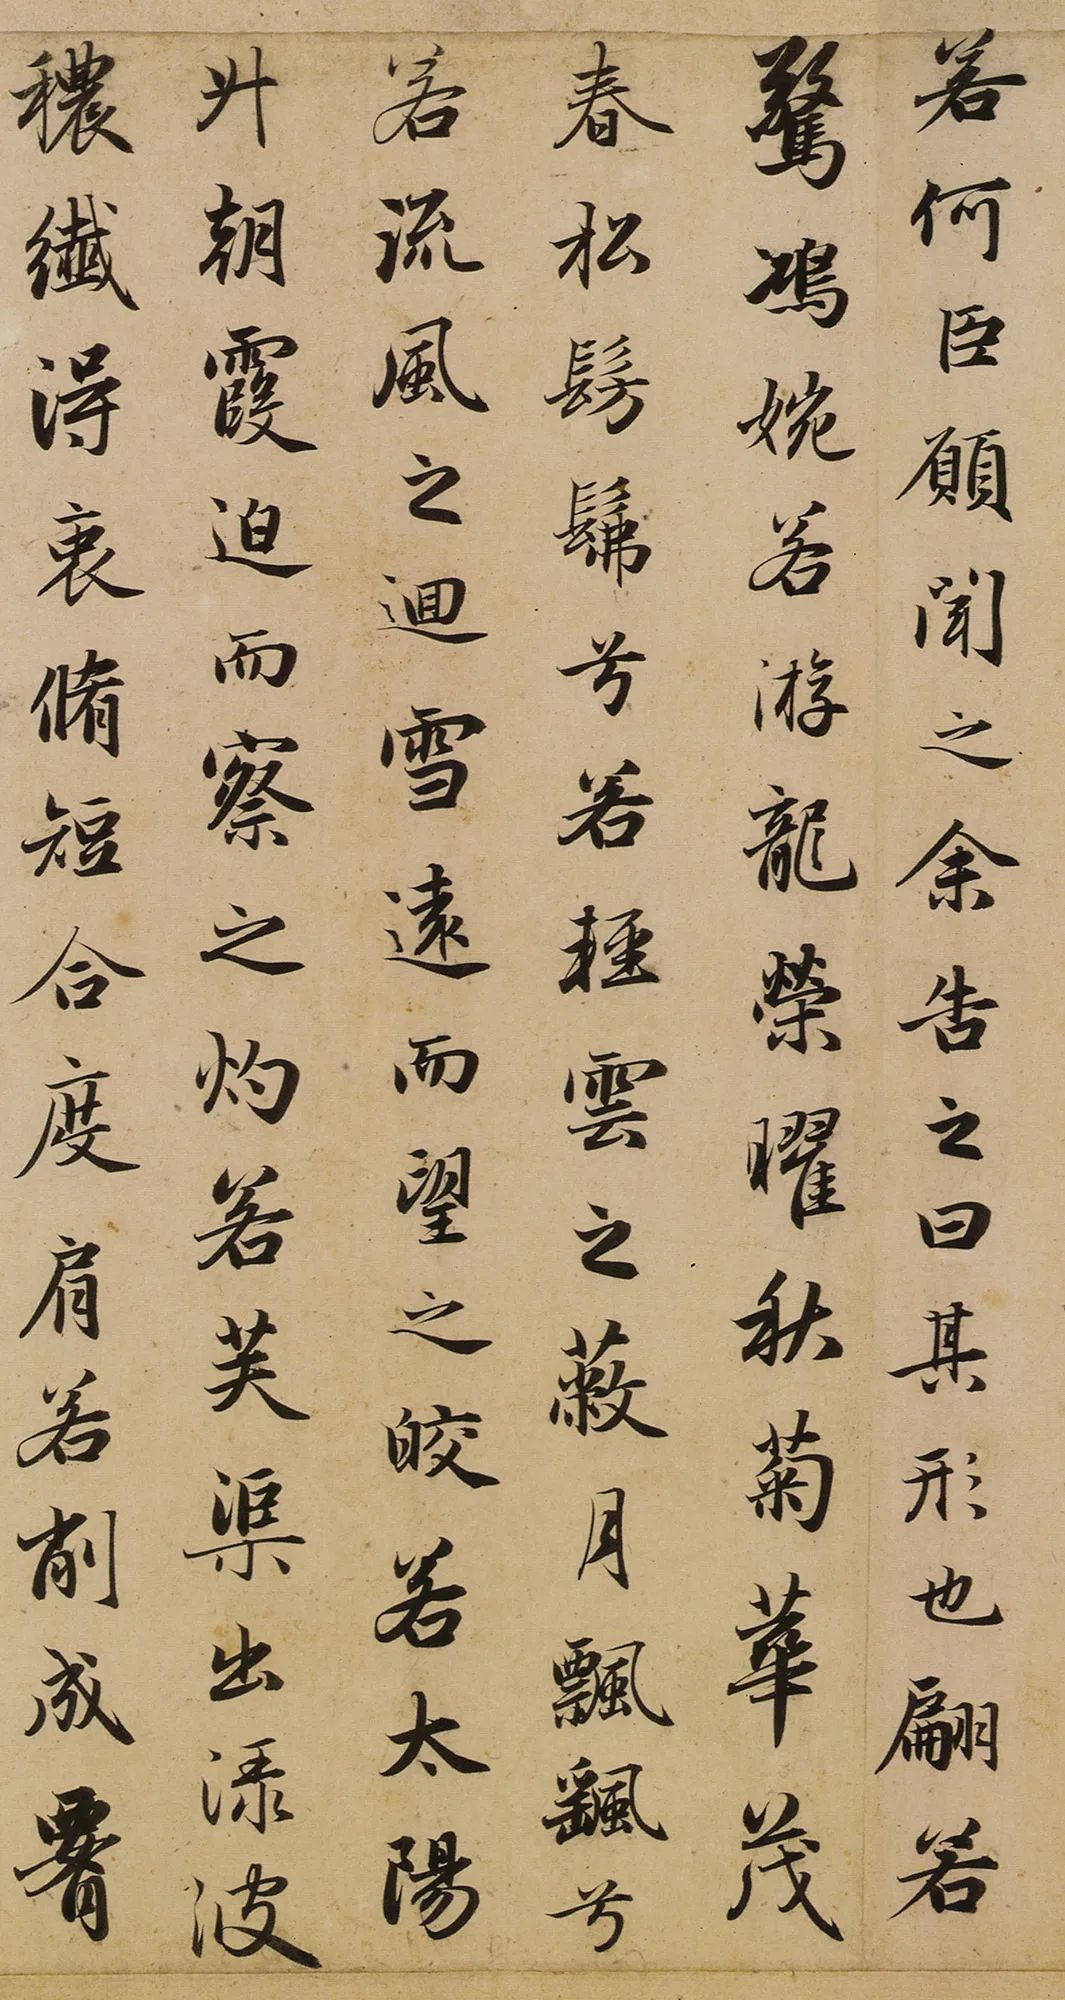 若何臣願聞之余告之曰其形也翩若
驚鴻婉若游龍榮曜秋菊華茂
春松髣髴兮若輕雲之蔽月飄颻兮
若流風之迴雪遠而望之皎若太陽
升朝霞迫而察之灼若芙渠出渌波
穠纖得衷脩短合度肩若削成腰